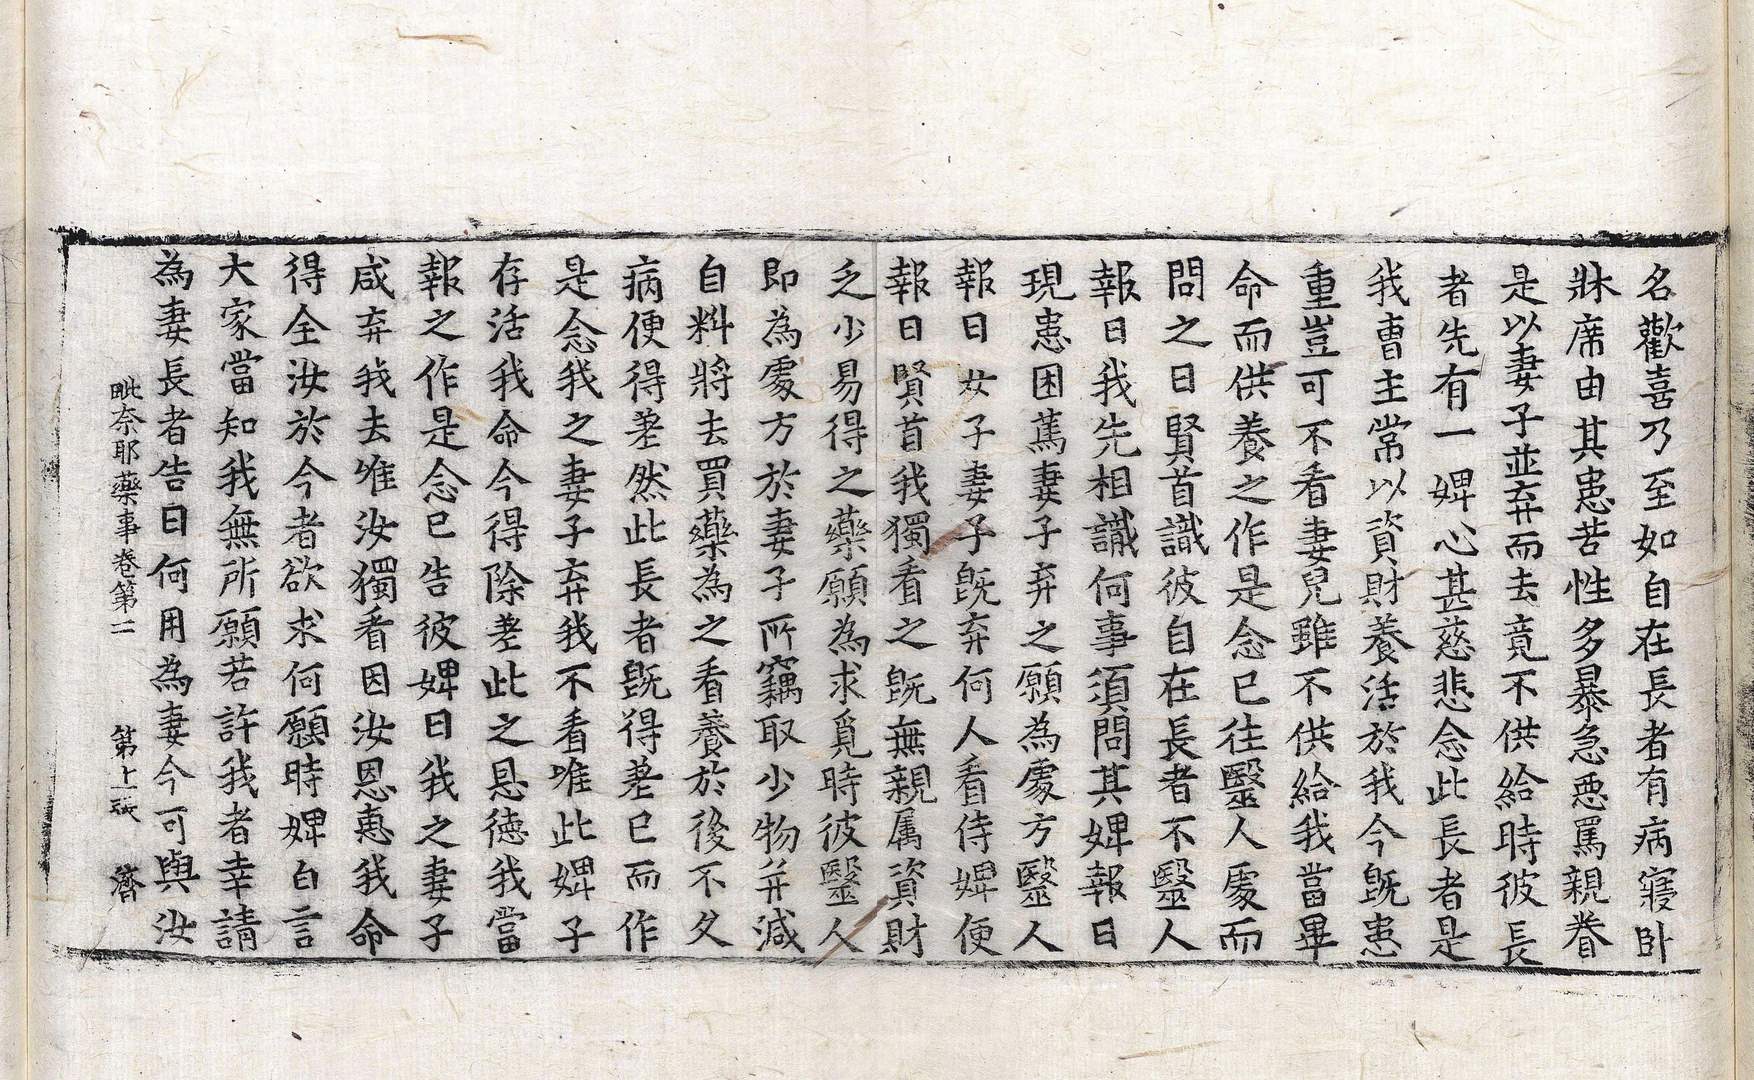 名歡喜乃至如自在長者有病寢卧
牀席由其患苦性多暴急惡罵親眷
是以妻子並弃而去竟不供給時彼長
者先有一婢心甚慈悲念此長者是
我曹主常以資財養活於我今旣患
重豈可不看妻兒雖不供給我當畢
命而供養之作是念已往毉人處而
問之曰賢首識彼自在長者不毉人
報曰我先相識何事須問其婢報曰
現患困篤妻子弃之願為處方毉人
報曰女子妻子旣弃何人看侍婢便
報曰賢首我獨看之旣無親屬資財
乏少易得之藥願為求覓時彼毉人
即為處方於妻子所竊取少物并減
自料將去買藥為之看養於後不久
病便得差然此長者旣得差已而作
是念我之妻子弃我不看唯此婢子
存活我命今得除差此之恩德我當
報之作是念已告彼婢曰我之妻子
咸弃我去唯汝獨看因汝恩惠我命
得全汝於今者欲求何願時婢白言
大家當知我無所願若許我者幸請
為妻長者告曰何用為妻今可與汝
毗奈耶藥事卷第二 第上張 濟